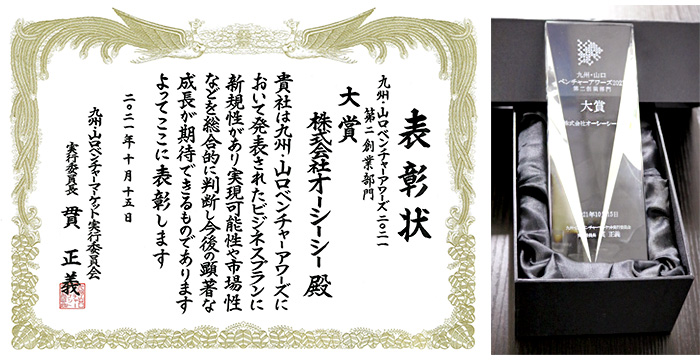 表彰状
九州・山口ベンチャーアワーズ二〇二一
第二創業部門
大賞
株式会社オーシーシー殿
貴社は九州・山口ベンチャーアワーズに
おいて発表されたビジネスプランに
新規性があり実現可能性や市場性
などを総合的に判断し今後の顕著な
成長が期待できるものであります
よってここに表彰します
二〇二一年十月十五日
九州・山口ベンチャーマーケット実行委員会
実行委員長 貫正義
九州・山口
ベンチャーアワーズ202
第二創業部門
大賞
株式会社オーシーシー
21年10月15日